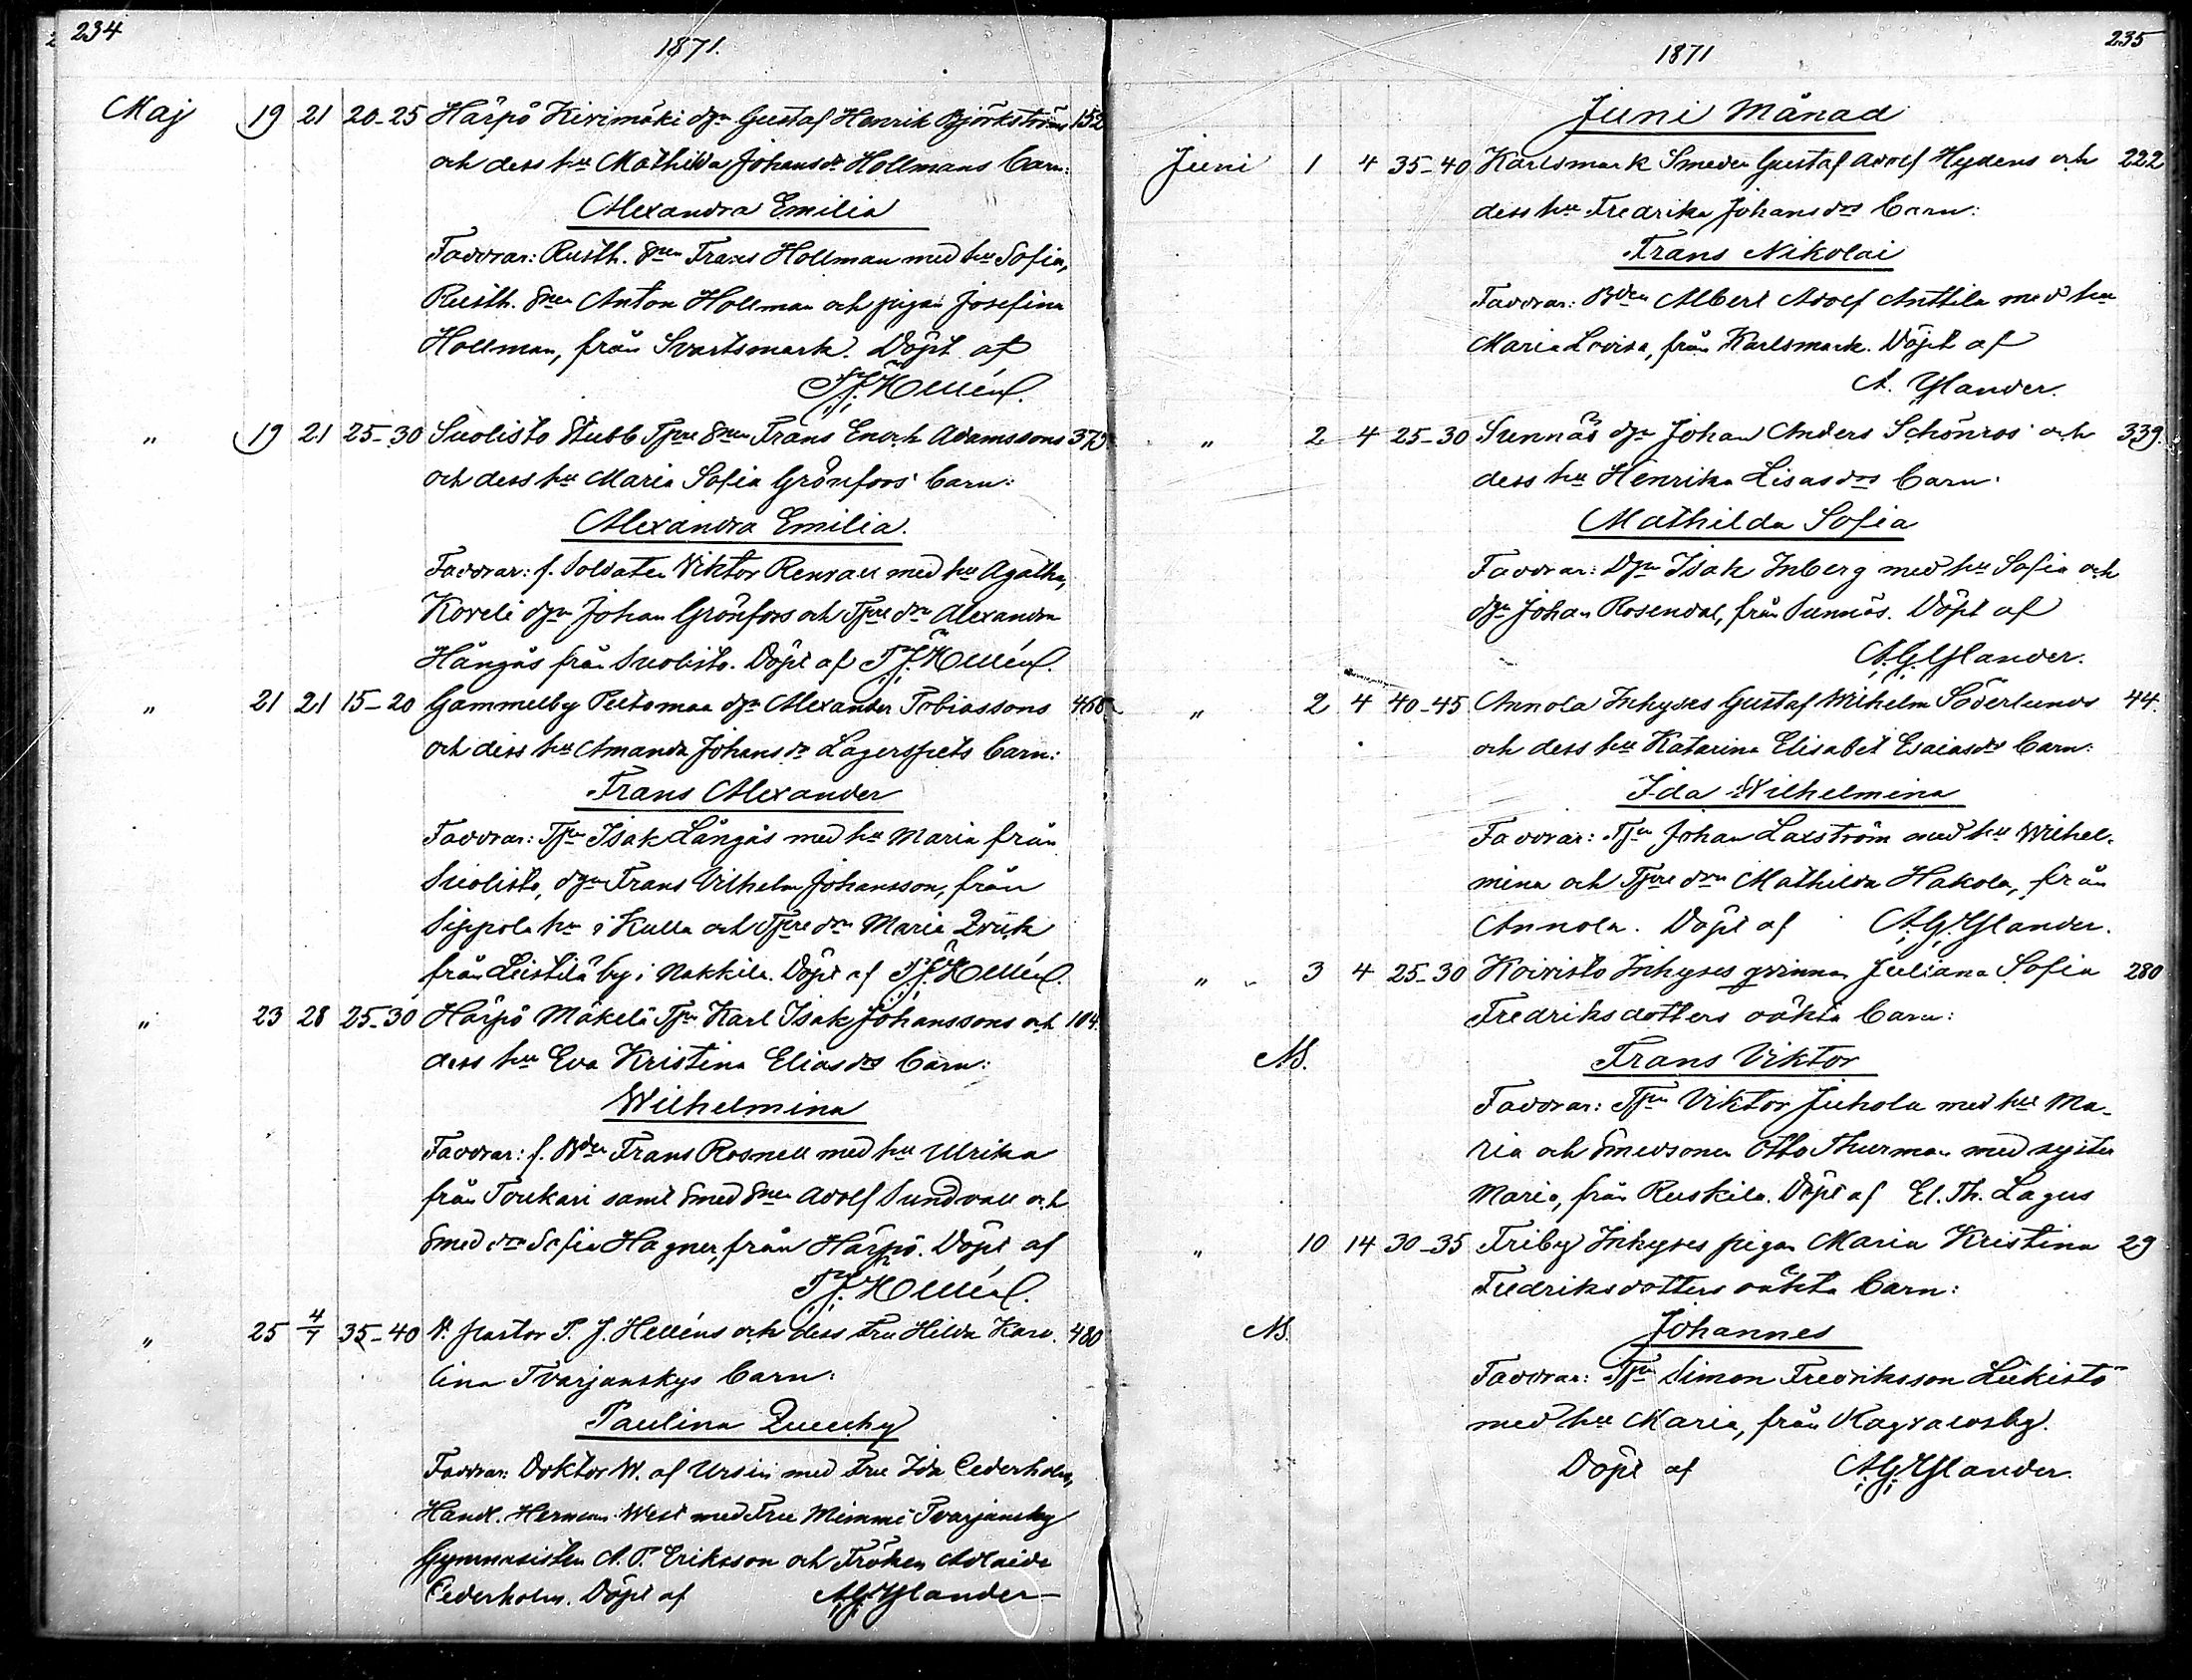 234
1871.
Maj 19 21 20-25 Härpö Kivimäki dgn Gustaf Henrik Björkströms 152
och dess hu Mathilda Johansdr Hollmans barn:
Alexandra Emilia
Faddrar: Rusth. snen Frans Hollman med hu Sofia,
Rusth. snen Anton Hollman och pigan Josefina
Hollman, från Svartsmark. Döpt af
P.J. Hellén.
" 19 21 25-30 Suolisto Stubb Tpre snen Frans Enoch Adamssons 379
och dess hu Maria Sofia Grönfors' barn:
Alexandra Emilia.
Faddrar: f. Soldaten Viktor Renvall med hu Agatha,
Koveli dgn Johan Grönfors och Tpre drn Alexandra
Hångås från Suolisto. Döpt af P.J. Hellén.
" 21 21 15-20 Gammelby Peltomaa dgn Alexander Tobiassons
och dess hu Amanda Johansdr Lagerspets barn:
Frans Alexander
Faddrar: Tpn Isak Långås med hu Maria från
Suolisto, dgn Frans Vilhelm Johansson, från
Sippola hn i Kulla och Tpre drn Maria
från Leistilä by i Nakkila. Döpt af P.J. Hellén.
" 23 28 25-30 Härpö Mäkelä Tpn Karl Isak Johanssons och 104.
dess hu Eva Kristina Eliasdrs barn:
Wilhelmina
Faddrar: f. Bden Frans Rosnell med hu Ulrika
från Toukari samt Smed snen Adolf Sundvall och
Smed drn Sofia Hagner, från Härpö. Döpt af
P.J. Hellén.
" 25 4/7 35-40 V. pastor P. J. Helléns och dess Fru Hilda Karo- 480
lina Tvarjanskys barn:
Paulina
Faddrar: Doktor W. af Ursin med Fru Ida Cederholm,
Handl. Herman West med Fru Mimmi Tvarjansky
Gymnasisten A. P. Eriksson och Fröken Adlaide
Cederholm. Döpt af A.G. Ylander
235
1871
Juni Månad
Juni 1 4 35-40 Karlsmark Smeden Gustaf Adolf Hydens och 222
dess hu Fredrika Johansdrs barn:
Frans Nikolai
Faddrar: Bden Albert Adolf Anttila med hu
Maria Lovisa, från Karlsmark. Döpt af
A. Ylander.
" 2 4 25-30 Sunnäs dgn Johan Anders Schönros' och 339.
dess hu Henrika Lisasdrs barn:
Mathilda Sofia
Faddrar: Dgn Isak Inberg med hu Sofia och
dgn Johan Rosendal, från Sunnäs. Döpt af
A.G. Ylander.
" 2 4 40-45 Annola Inhyses Gustaf Wilhelm Söderlunds 44.
och dess hu Katarina Elisabet Esaiasdrs barn:
Ida Wilhelmina
Faddrar: Tpn Johan Laxström med hu Wilhel-
mina och Tpre drn Mathilda Hakola, från
Annola. Döpt af A.G. Ylander.
" 3 4 25-30 Koivisto Inhyses qvinnan Juliana Sofia 280
Fredriksdotters oäkta barn:
NB. Frans Viktor
Faddrar: Tpn Viktor Juhola med hu Ma-
ria och Smedsonen Otto Thurman med syster
Maria, från Ruskila. Döpt af El. Th. Lagus
" 10 14 30-35 Friby Inhyses pigan Maria Kristina 29
Fredriksdotters oäkta barn:
NB. Johannes
Faddrar: Tpn Simon Fredriksson Liikistö
med hu Maria, från Ragvaldsby.
Döpt af A.G. Ylander.